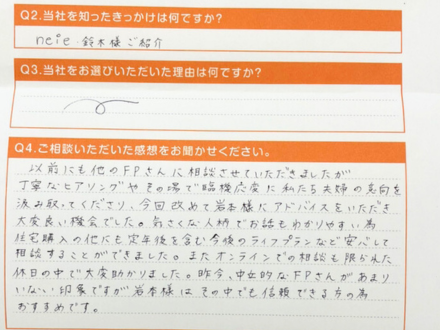 Q2.当社を知ったきっかけは何ですか?
neie・鈴木様ご紹介
Q3.当社をお選びいただいた理由は何ですか?
Q4.ご相談いただいた感想をお聞かせください。
以前にも他のFPさんに相談させていただきましたが
丁寧なヒアリングやその場で臨機応変に私たち夫婦の意向を
汲み取ってくださり、今回改めて岩本様にアドバイスをいただき
大変良い機会でした。気さくな人柄でお話もわかりやすい為
住宅購入の他にも定年後を含む今後のライフプランなど安心して
相談することができました。またオンラインでの相談も限られた
休日の中で大変助かりました。昨今、中立的なFPさんがあまり
いない印象ですが岩本様はその中でも信頼できる方の為
おすすめです。